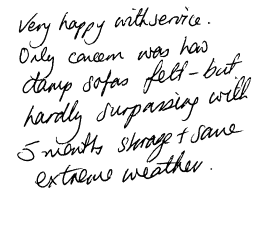 Very happy with service.
Only concern was how
damp sofas felt - but
hardly surpassing with
5 months storage + some
extreme weather.